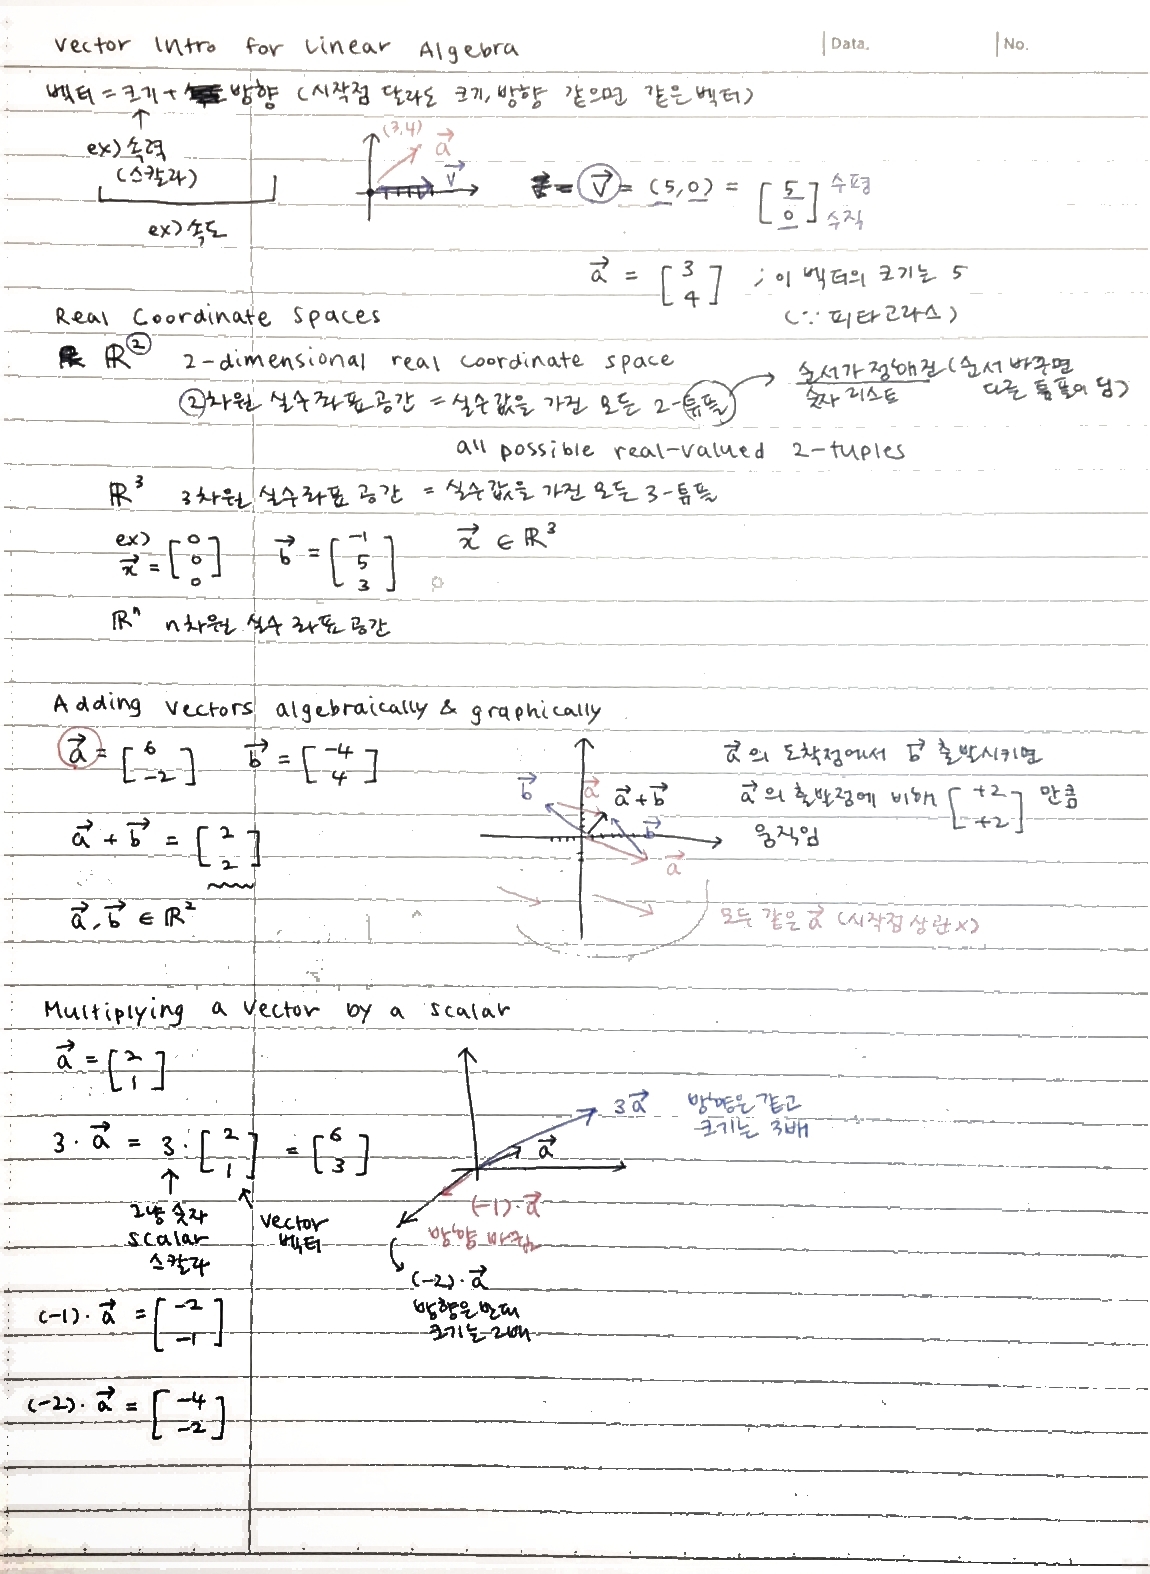 Vector Intro for Linear Algebra
Data.
No.
벡터 = 크기 + 방향 (시작점 달라도 크기, 방향 같으면 같은 벡터)
↑
ex) 속력
(스칼라)
ex) 속도
(3,4)
a⃗
v⃗
v⃗ = (5,0) = [5 0] 수평 수직
a⃗ = [3 4] ; 이 벡터의 크기는 5
(∵ 피타고라스)
Real Coordinate Spaces
ℝ² 2-dimensional real coordinate space
②차원 실수좌표공간 = 실수값을 가진 모든 2-튜플 → 순서가 정해진 숫자 리스트 (순서 바꾸면 다른 튜플이 됨)
all possible real-valued 2-tuples
ℝ³ 3차원 실수좌표 공간 = 실수값을 가진 모든 3-튜플
ex)
x⃗ = [0 0 0] b⃗ = [-1 5 3] x⃗ ∈ ℝ³
ℝⁿ n차원 실수 좌표 공간
Adding vectors algebraically & graphically
a⃗ = [6 -2] b⃗ = [-4 4]
a⃗ + b⃗ = [2 2]
a⃗, b⃗ ∈ ℝ²
b⃗
a⃗
a⃗ + b⃗
b⃗
a⃗
a⃗의 도착점에서 b⃗ 출발시키면
a⃗의 출발점에 비해 [+2 +2] 만큼
움직임
모두 같은 a⃗ (시작점 상관 x)
Multiplying a vector by a scalar
a⃗ = [2 1]
3 · a⃗ = 3 · [2 1] = [6 3]
그냥 숫자
scalar
스칼라
vector
벡터
3a⃗ 방향은 같고
크기는 3배
a⃗
(-1)·a⃗
방향 바뀜
(-2)·a⃗
방향은 반대
크기는 2배
(-1)· a⃗ = [-2 -1]
(-2)· a⃗ = [-4 -2]